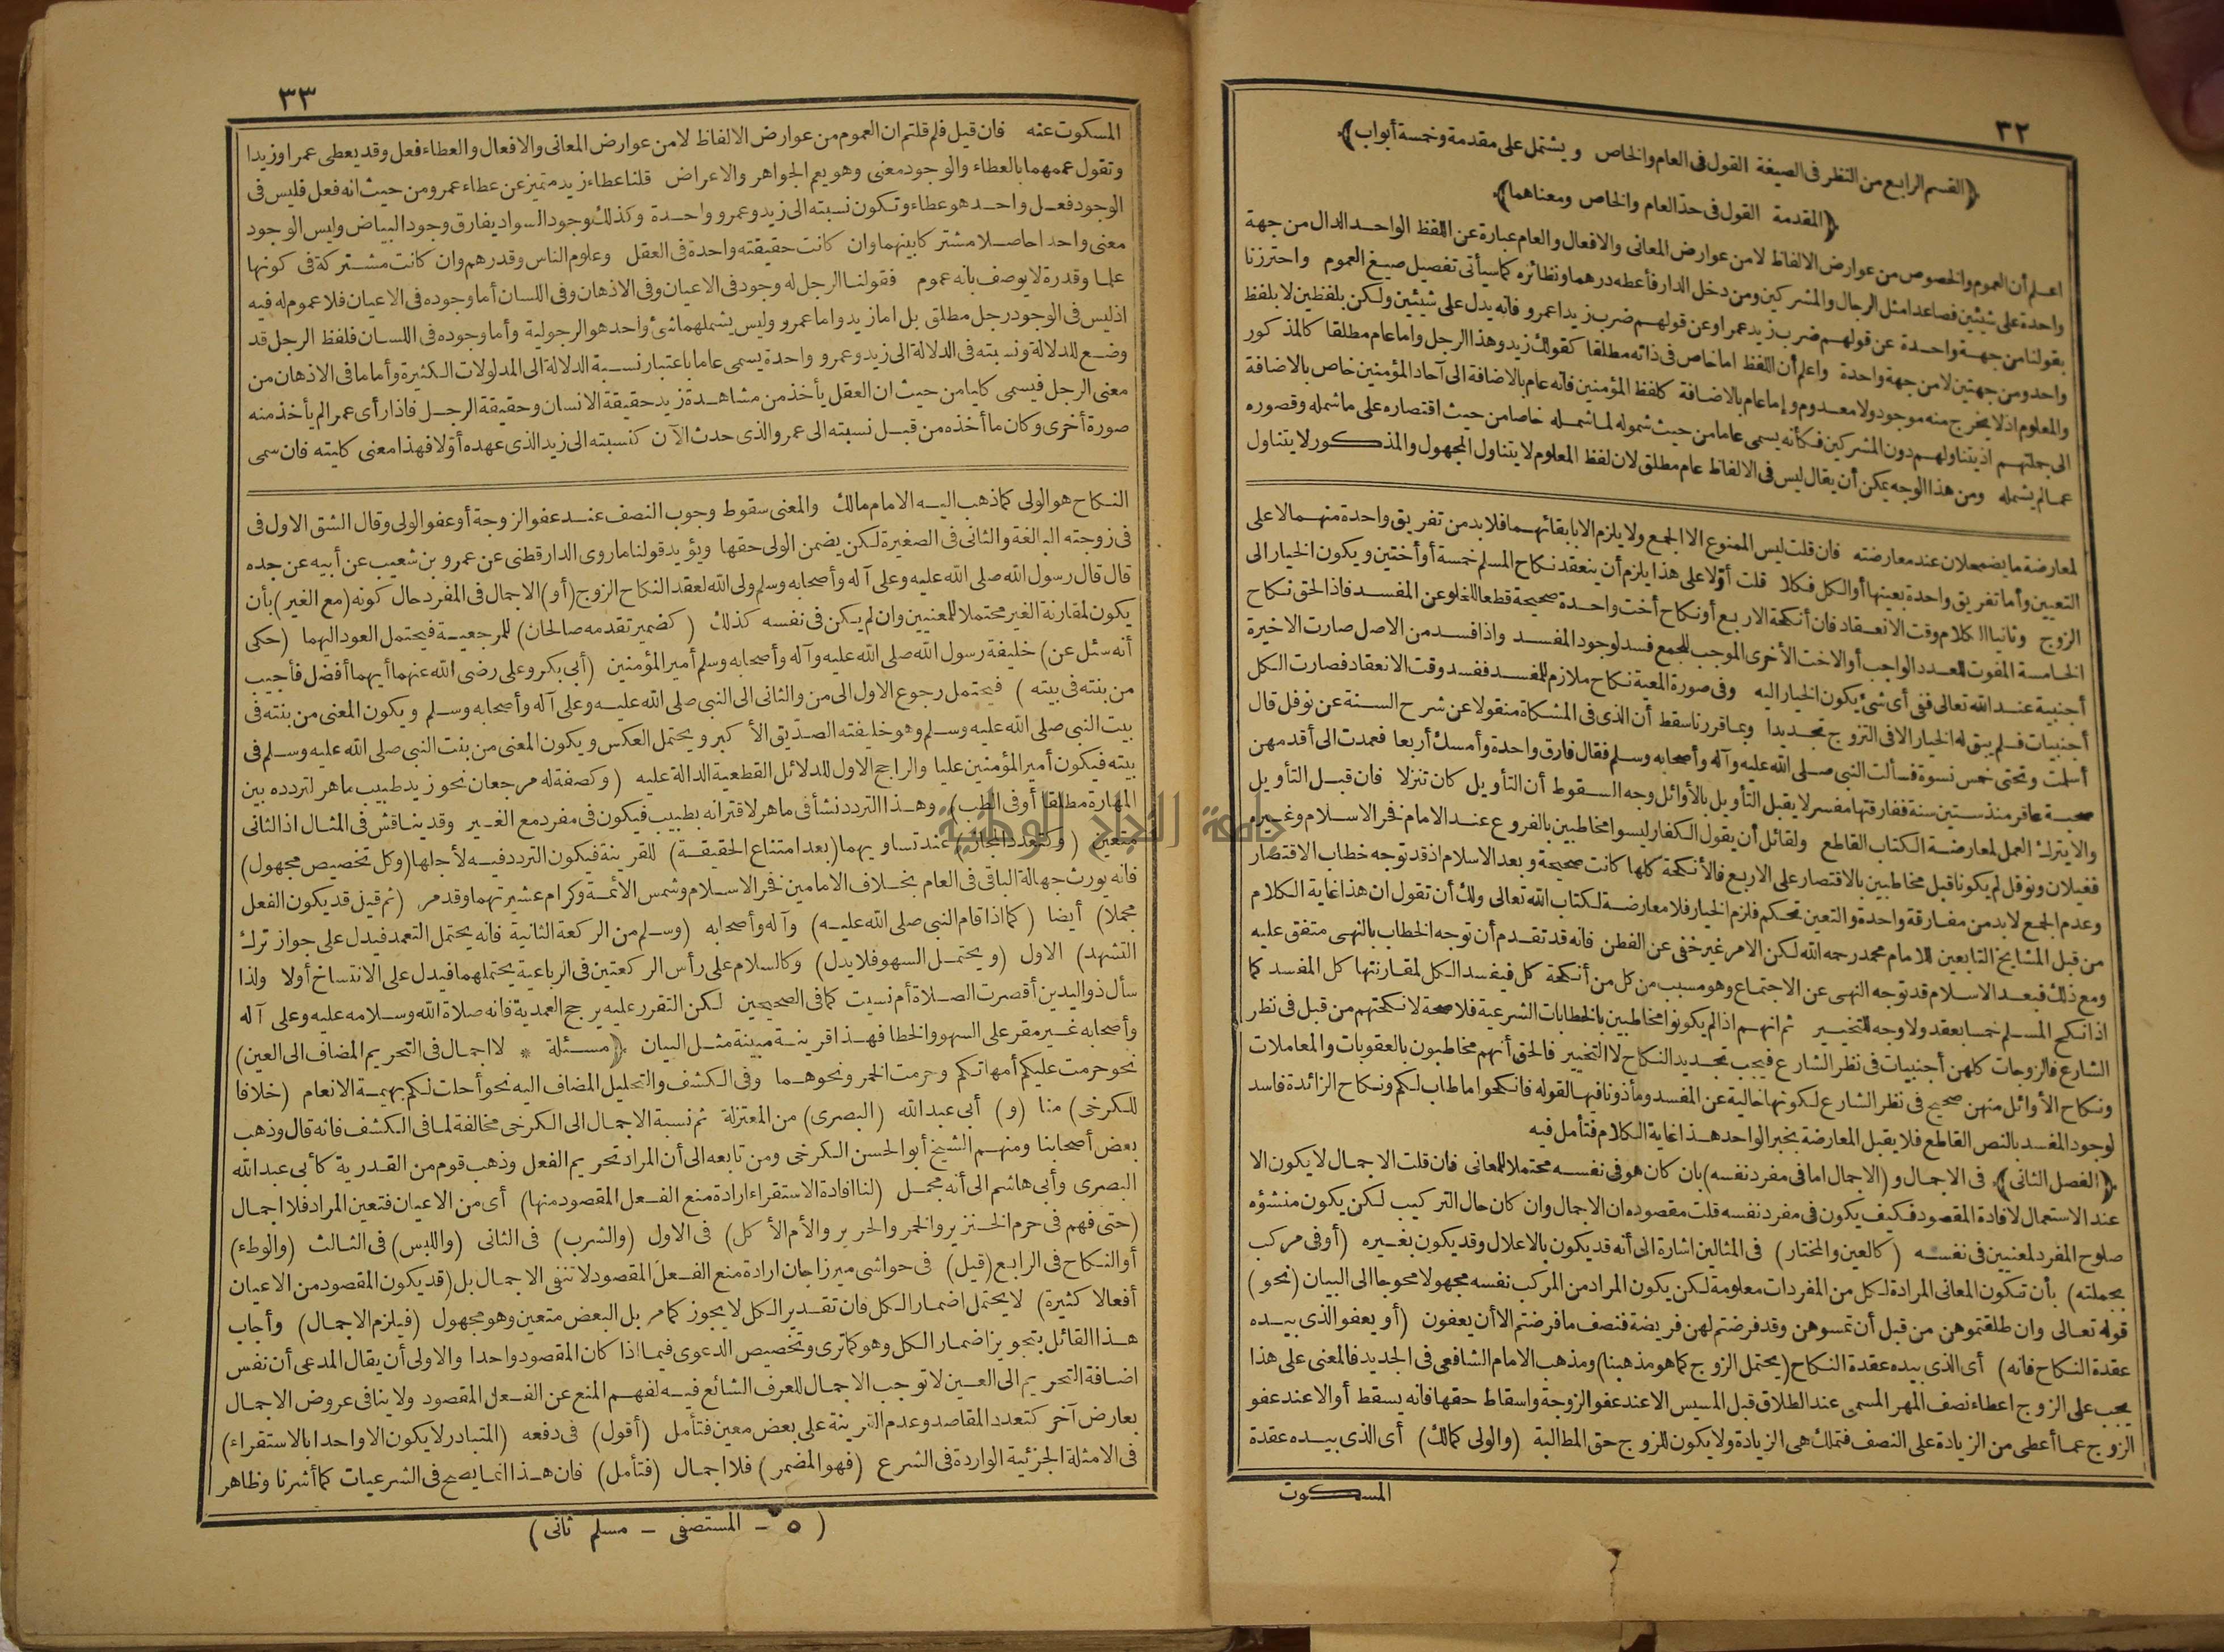 ٣٢
﴿القسم الرابع من النظر فى الصيغة القول فى العام والخاص ويشتمل على مقدمة وخمسة أبواب﴾
﴿المقدمة القول فى حد العام والخاص ومعناهما﴾
اعلم أن العموم والخصوص من عوارض الالفاظ لا من عوارض المعانى والافعال والعام عبارة عن اللفظ الواحد الدال من جهة
واحدة على شيئين فصاعدا مثل الرجال والمشركين ومن دخل الدار فأعطه درهما ونظائره كما سيأتى تفصيل صيغ العموم واحترزنا
بقولنا من جهة واحدة عن قولهم ضرب زيد عمرا وعن قولهم ضرب زيدا عمرو فانه يدل على شيئين ولكن بلفظين لا بلفظ
واحد ومن جهتين لا من جهة واحدة واعلم أن اللفظ اما خاص فى ذاته مطلقا كقولك زيد وهذا الرجل واما عام مطلقا كالمذكور
والمعلوم اذ لا يخرج منه موجود ولا معدوم وإما عام بالاضافة كلفظ المؤمنين فانه عام بالاضافة الى آحاد المؤمنين خاص بالاضافة
الى جملتهم اذ يتناولهم دون المشركين فكأنه يسمى عاما من حيث شموله لما شمله خاصا من حيث اقتصاره على ما شمله وقصوره
عما لم يشمله ومن هذا الوجه يمكن أن يقال ليس فى الالفاظ عام مطلق لان لفظ المعلوم لا يتناول المجهول والمذكور لا يتناول
لمعارضة ما يضمحلان عند معارضته فان قلت ليس الممنوع الا الجمع ولا يلزم الا بابقائهما فلا بد من تفريق واحدة منهما لا على
التعيين وأما تفريق واحدة بعينها أو الكل فكلا قلت أوّلا على هذا يلزم أن ينعقد نكاح المسلم خمسة أو أختين ويكون الخيار الى
الزوج وثانيا الكلام وقت الانعقاد فان أنكحة الاربع أو نكاح أخت واحدة صحيحة قطعا للخلو عن المفسد فاذا لحق نكاح
الخامسة المفوت للعدد الواجب أو الاخت الأخرى الموجب للجمع فسد لوجود المفسد واذا فسد من الاصل صارت الاخيرة
أجنبية عند الله تعالى ففى أى شئ يكون الخيار اليه وفى صورة المعية نكاح ملازم للمفسد ففسد وقت الانعقاد فصارت الكل
أجنبيات فلم يبق له الخيار الا فى التزوج تجديدا وبما قررنا سقط أن الذى فى المشكاة منقولا عن شرح السنة عن نوفل قال
أسلمت وتحتى خمس نسوة فسألت النبى صلى الله عليه وآله وأصحابه وسلم فقال فارق واحدة وأمسك أربعا فعمدت الى أقدمهن
صحبة عاقر منذ ستين سنة ففارقتها مفسر لا يقبل التأويل بالأوائل وجه السقوط أن التأويل كان تنزلا فان قبل التأويل
والا يترك العمل لمعارضة الكتاب القاطع ولقائل أن يقول الكفار ليسوا مخاطبين بالفروع عند الامام فخر الاسلام وغيره
فغيلان ونوفل لم يكونا قبل مخاطبين بالاقتصار على الاربع فالأنكحة كلها كانت صحيحة وبعد الاسلام اذ قد توجه خطاب الاقتصار
وعدم الجمع لا بد من مفارقة واحدة والتعين تحكم فلزم الخيار فلا معارضة لكتاب الله تعالى ولك أن تقول ان هذا غاية الكلام
من قبل المشايخ التابعين للامام محمد رحمه الله لكن الامر غير خفى عن الفطن فانه قد تقدم أن توجه الخطاب بالنهى متفق عليه
ومع ذلك فبعد الاسلام قد توجه النهى عن الاجتماع وهو مسبب من كل من أنكحة كل فيفسد الكل لمقارنتها كل المفسد كما
اذا نكح المسلم خمسا بعقد ولا وجه للتخيير ثم انهم اذا لم يكونوا مخاطبين بالخطابات الشرعية فلا صحة لانكحتهم من قبل فى نظر
الشارع فالزوجات كلهن أجنبيات فى نظر الشارع فيجب تجديد النكاح لا التخيير فالحق أنهم مخاطبون بالعقوبات والمعاملات
ونكاح الأوائل منهن صحيح فى نظر الشارع لكونها خالية عن المفسد ومأذونا فيها لقوله فانكحوا ما طاب لكم ونكاح الزائدة فاسد
لوجود المفسد بالنص القاطع فلا يقبل المعارضة بخبر الواحد هذا غاية الكلام فتأمل فيه
﴿الفصل الثانى﴾ فى الاجمال و (الاجمال اما فى مفرد نفسه) بان كان هو فى نفسه محتملا للمعانى فان قلت الاجمال لا يكون الا
عند الاستعمال لافادة المقصود فكيف يكون فى مفرد نفسه قلت مقصوده ان الاجمال وان كان حال التركيب لكن يكون منشؤه
صلوح المفرد لمعنيين فى نفسه (كالعين والمختار) فى المثالين اشارة الى أنه قد يكون بالاعلال وقد يكون بغيره (أو فى مركب
بجملته) بأن تكون المعانى المرادة لكل من المفردات معلومة لكن يكون المراد من المركب نفسه مجهولا محوجا الى البيان (نحو)
قوله تعالى وان طلقتموهن من قبل أن تمسوهن وقد فرضتم لهن فريضة فنصف ما فرضتم الا أن يعفون (أو يعفو الذى بيده
عقدة النكاح فانه) أى الذى بيده عقدة النكاح (يحتمل الزوج كما هو مذهبنا) ومذهب الامام الشافعى فى الجديد فالمعنى على هذا
يجب على الزوج اعطاء نصف المهر المسمى عند الطلاق قبل المسيس الا عند عفو الزوجة واسقاط حقها فانه يسقط أو الا عند عفو
الزوج عما أعطى من الزيادة على النصف فتملك هى الزيادة ولا يكون للزوج حق المطالبة (والولى كمالك) أى الذى بيده عقدة
المسكوت
٣٣
المسكوت عنه فان قيل فلم قلتم ان العموم من عوارض الالفاظ لا من عوارض المعانى والافعال والعطاء فعل وقد يعطى عمرا وزيدا
وتقول عمهما بالعطاء والوجود معنى وهو يعم الجواهر والاعراض قلنا عطاء زيد متميز عن عطاء عمرو من حيث انه فعل فليس فى
الوجود فعل واحد هو عطاء وتكون نسبته الى زيد وعمرو واحدة وكذلك وجود السواد يفارق وجود البياض وليس الوجود
معنى واحدا حاصلا مشتركا بينهما وان كانت حقيقته واحدة فى العقل وعلوم الناس وقدرهم وان كانت مشتركة فى كونها
علما وقدرة لا يوصف بانه عموم فقولنا الرجل له وجود فى الاعيان وفى الاذهان وفى اللسان أما وجوده فى الاعيان فلا عموم له فيه
اذ ليس فى الوجود رجل مطلق بل اما زيد واما عمرو وليس يشملهما شئ واحد هو الرجولية وأما وجوده فى اللسان فلفظ الرجل قد
وضع للدلالة ونسبته فى الدلالة الى زيد وعمرو واحدة يسمى عاما باعتبار نسبة الدلالة الى المدلولات الكثيرة وأما ما فى الاذهان من
معنى الرجل فيسمى كليا من حيث ان العقل يأخذ من مشاهدة زيد حقيقة الانسان وحقيقة الرجل فاذا رأى عمرا لم يأخذ منه
صورة أخرى وكان ما أخذه من قبل نسبته الى عمرو الذى حدث الآن كنسبته الى زيد الذى عهده أوّلا فهذا معنى كليته فان سمى
النكاح هو الولى كما ذهب اليه الامام مالك والمعنى سقوط وجوب النصف عند عفو الزوجة أو عفو الولى وقال الشق الاول فى
فى زوجته البالغة والثانى فى الصغيرة لكن يضمن الولى حقها ويؤيد قولنا ما روى الدارقطنى عن عمرو بن شعيب عن أبيه عن جده
قال قال رسول الله صلى الله عليه وعلى آله وأصحابه وسلم ولى الله لعقد النكاح الزوج (أو) الاجمال فى المفرد حال كونه (مع الغير) بأن
يكون لمقارنة الغير محتملا للمعنيين وان لم يكن فى نفسه كذلك (كضمير تقدمه صالحان) للمرجعية فيحتمل العود اليهما (حكى
أنه سئل عن) خليفة رسول الله صلى الله عليه وآله وأصحابه وسلم أمير المؤمنين (أبى بكر وعلى رضى الله عنهما أيهما أفضل فأجيب
من بنته فى بيته) فيحتمل رجوع الاول الى من والثانى الى النبى صلى الله عليه وعلى آله وأصحابه وسلم ويكون المعنى من بنته فى
بيت النبى صلى الله عليه وسلم وهو خليفته الصدّيق الأكبر ويحتمل العكس ويكون المعنى من بنت النبى صلى الله عليه وسلم فى
بيته فيكون أمير المؤمنين عليا والراجح الاول للدلائل القطعية الدالة عليه (وكصفة له مرجعان نحو زيد طبيب ماهر لتردده بين
المهارة مطلقا أو فى الطب) وهذا التردد نشأ فى ماهر لاقترانه بطبيب فيكون فى مفرد مع الغير وقد يناقش فى المثال اذ الثانى
متعين (وكتعدد المجاز) عند تساويهما (بعد امتناع الحقيقة) للقرينة فيكون التردد فيه لأجلها (وكل تخصيص مجهول)
فانه يورث جهالة الباقى فى العام بخلاف الامامين فخر الاسلام وشمس الأئمة وكرام عشيرتهما وقد مر (ثم قيل قد يكون الفعل
مجملا) أيضا (كما اذا قام النبى صلى الله عليه) وآله وأصحابه (وسلم من الركعة الثانية فانه يحتمل التعمد فيدل على جواز ترك
التشهد) الاول (ويحتمل السهو فلا يدل) وكالسلام على رأس الركعتين فى الرباعية يحتملهما فيدل على الانتساخ أولا ولذا
سأل ذو اليدين أقصرت الصلاة أم نسيت كما فى الصحيحين لكن التقرر عليه يرجح العمدية فانه صلاة الله وسلامه عليه وعلى آله
وأصحابه غير مقر على السهو والخطا فهذا قرينة مبينة مثل البيان ﴿مسئلة * لا اجمال فى التحريم المضاف الى العين)
نحو حرمت عليكم أمهاتكم وحرمت الخمر ونحوهما وفى الكشف والتحليل المضاف اليه نحو أحلت لكم بهيمة الانعام (خلافا
للكرخى) منا (و) أبى عبد الله (البصرى) من المعتزلة ثم نسبة الاجمال الى الكرخى مخالفة لما فى الكشف فانه قال وذهب
بعض أصحابنا ومنهم الشيخ أبو الحسن الكرخى ومن تابعه الى أن المراد تحريم الفعل وذهب قوم من القدرية كأبى عبد الله
البصرى وأبى هاشم الى أنه مجمل (لنا افادة الاستقراء ارادة منع الفعل المقصود منها) أى من الاعيان فتعين المراد فلا اجمال
(حتى فهم فى حرم الخنزير والخمر والحرير والأم الأكل) فى الاول (والشرب) فى الثانى (واللبس) فى الثالث (والوطء)
أو النكاح فى الرابع (قيل) فى حواشى ميرزاجان ارادة منع الفعل المقصود لا تنفى الاجمال بل (قد يكون المقصود من الاعيان
أفعالا كثيرة) لا يحتمل اضمار الكل فان تقدير الكل لا يجوز كما مر بل البعض متعين وهو مجهول (فيلزم الاجمال) وأجاب
هذا القائل بتجويز اضمار الكل وهو كما ترى وتخصيص الدعوى فيما اذا كان المقصود واحدا والاولى أن يقال المدعى أن نفس
اضافة التحريم الى العين لا توجب الاجمال للعرف الشائع فيه لفهم المنع عن الفعل المقصود ولا ينافى عروض الاجمال
بعارض آخر كتعدد المقاصد وعدم القرينة على بعض معين فتأمل (أقول) فى دفعه (المتبادر لا يكون الا واحدا بالاستقراء)
فى الامثلة الجزئية الواردة فى الشرع (فهو المضمر) فلا اجمال (فتأمل) فان هذا انما يصح فى الشرعيات كما أشرنا وظاهر
(٥ – المستصفى – مسلم ثانى)
جامعة النجاح الوطنية